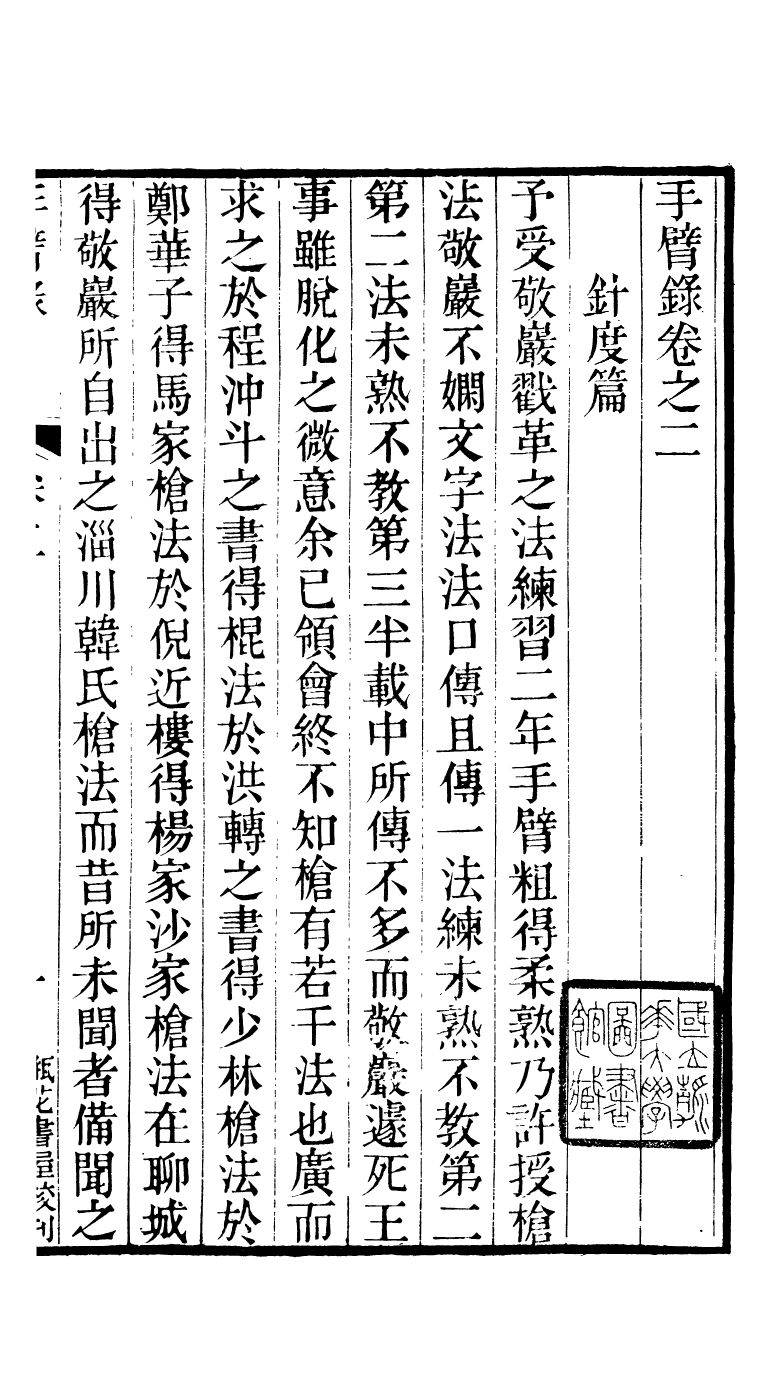 手臂錄卷之二
針度篇
予受敬巖戳革之法練習二年手臂粗得柔熟乃許授槍
法敬巖不嫻文字法法口傳且傳一法練未熟不教第二
第二法未熟不教第三半載中所傳不多而敬巖遽死王
事雖脫化之微意余已領會終不知槍有若干法也廣而
求之於程沖斗之書得棍法於洪轉之書得少林槍法於
鄭華子得馬家槍法於倪近樓得楊家沙家槍法在聊城
得敬巖所自出之淄川韓氏槍法而昔所未聞者備聞之
手臂錄 卷二 一 瓶花書屋校刊
國立清
華大學
圖書
館藏